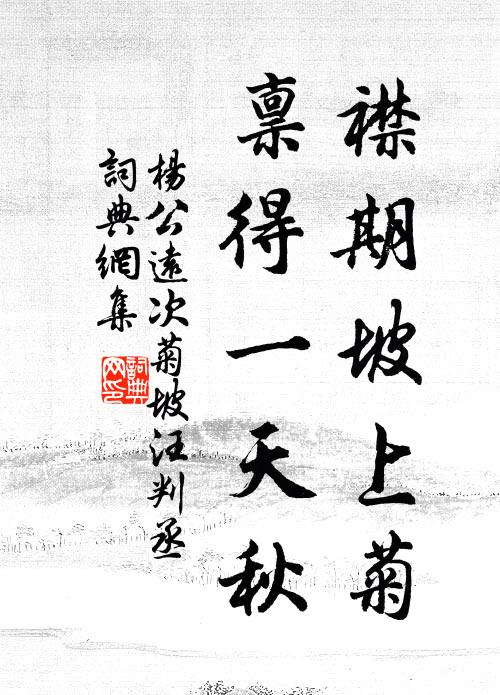 襟期坡上菊
禀得一天秋
楊公遠次菊坡汪判丞
詞典網集
詞典网印